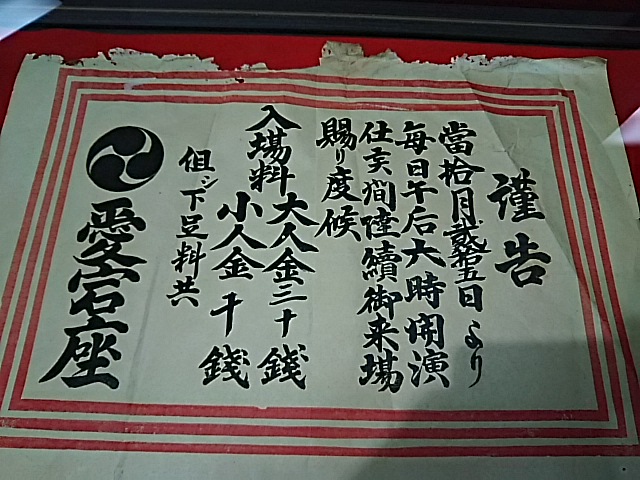 謹告
當拾月貮拾五日より
毎日午后六時開演
仕実間陸續御来場
賜り度候
入場料大人金三十錢
小人金十錢
但シ下足料共
愛宕座